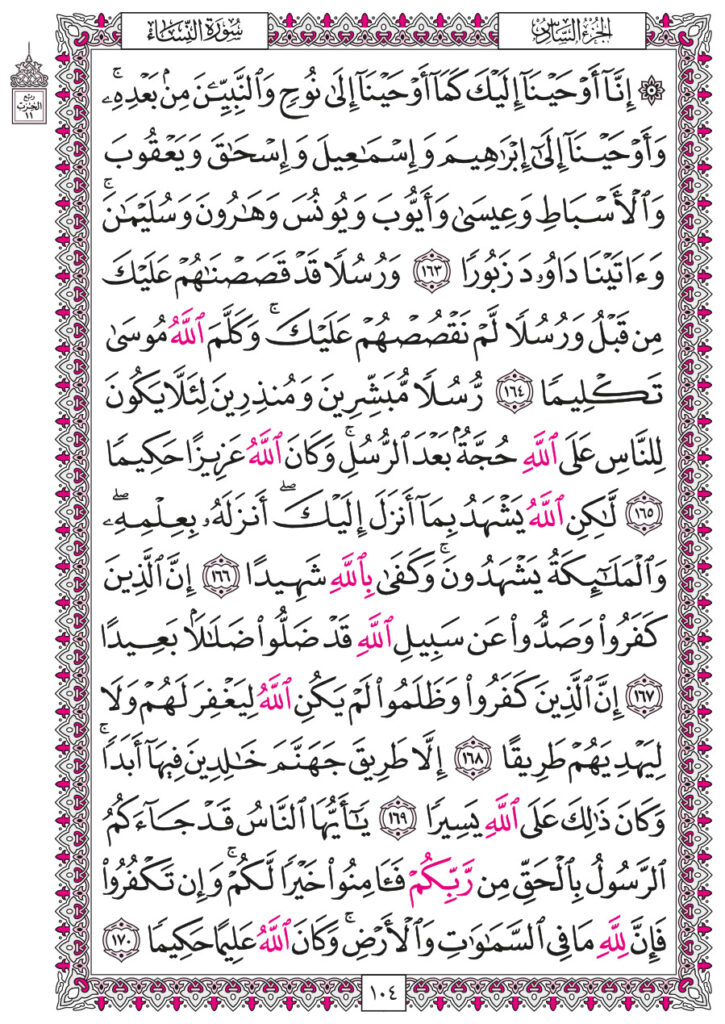 سُورَةُ النِّسَاءِ
الجُزْءُ السَّادِسُ
رُبْعُ
الحِزْبِ
١١
۞ إِنَّآ أَوْحَيْنَآ إِلَيْكَ كَمَآ أَوْحَيْنَآ إِلَىٰ نُوحٍ وَٱلنَّبِيِّـۧنَ مِنۢ بَعْدِهِۦۚ
وَأَوْحَيْنَآ إِلَىٰٓ إِبْرَٰهِيمَ وَإِسْمَٰعِيلَ وَإِسْحَٰقَ وَيَعْقُوبَ
وَٱلْأَسْبَاطِ وَعِيسَىٰ وَأَيُّوبَ وَيُونُسَ وَهَٰرُونَ وَسُلَيْمَٰنَۚ
وَءَاتَيْنَا دَاوُۥدَ زَبُورًا ١٦٣ وَرُسُلًا قَدْ قَصَصْنَٰهُمْ عَلَيْكَ
مِن قَبْلُ وَرُسُلًا لَّمْ نَقْصُصْهُمْ عَلَيْكَۚ وَكَلَّمَ ٱللَّهُ مُوسَىٰ
تَكْلِيمًا ١٦٤ رُّسُلًا مُّبَشِّرِينَ وَمُنذِرِينَ لِئَلَّا يَكُونَ
لِلنَّاسِ عَلَى ٱللَّهِ حُجَّةٌۢ بَعْدَ ٱلرُّسُلِۚ وَكَانَ ٱللَّهُ عَزِيزًا حَكِيمًا
١٦٥ لَّٰكِنِ ٱللَّهُ يَشْهَدُ بِمَآ أَنزَلَ إِلَيْكَۖ أَنزَلَهُۥ بِعِلْمِهِۦۖ
وَٱلْمَلَٰٓئِكَةُ يَشْهَدُونَۚ وَكَفَىٰ بِٱللَّهِ شَهِيدًا ١٦٦ إِنَّ ٱلَّذِينَ
كَفَرُوا۟ وَصَدُّوا۟ عَن سَبِيلِ ٱللَّهِ قَدْ ضَلُّوا۟ ضَلَٰلًۢا بَعِيدًا
١٦٧ إِنَّ ٱلَّذِينَ كَفَرُوا۟ وَظَلَمُوا۟ لَمْ يَكُنِ ٱللَّهُ لِيَغْفِرَ لَهُمْ وَلَا
لِيَهْدِيَهُمْ طَرِيقًا ١٦٨ إِلَّا طَرِيقَ جَهَنَّمَ خَٰلِدِينَ فِيهَآ أَبَدًاۚ
وَكَانَ ذَٰلِكَ عَلَى ٱللَّهِ يَسِيرًا ١٦٩ يَٰٓأَيُّهَا ٱلنَّاسُ قَدْ جَآءَكُمُ
ٱلرَّسُولُ بِٱلْحَقِّ مِن رَّبِّكُمْ فَـَٔامِنُوا۟ خَيْرًا لَّكُمْۚ وَإِن تَكْفُرُوا۟
فَإِنَّ لِلَّهِ مَا فِى ٱلسَّمَٰوَٰتِ وَٱلْأَرْضِۚ وَكَانَ ٱللَّهُ عَلِيمًا حَكِيمًا ١٧٠
١٠٤